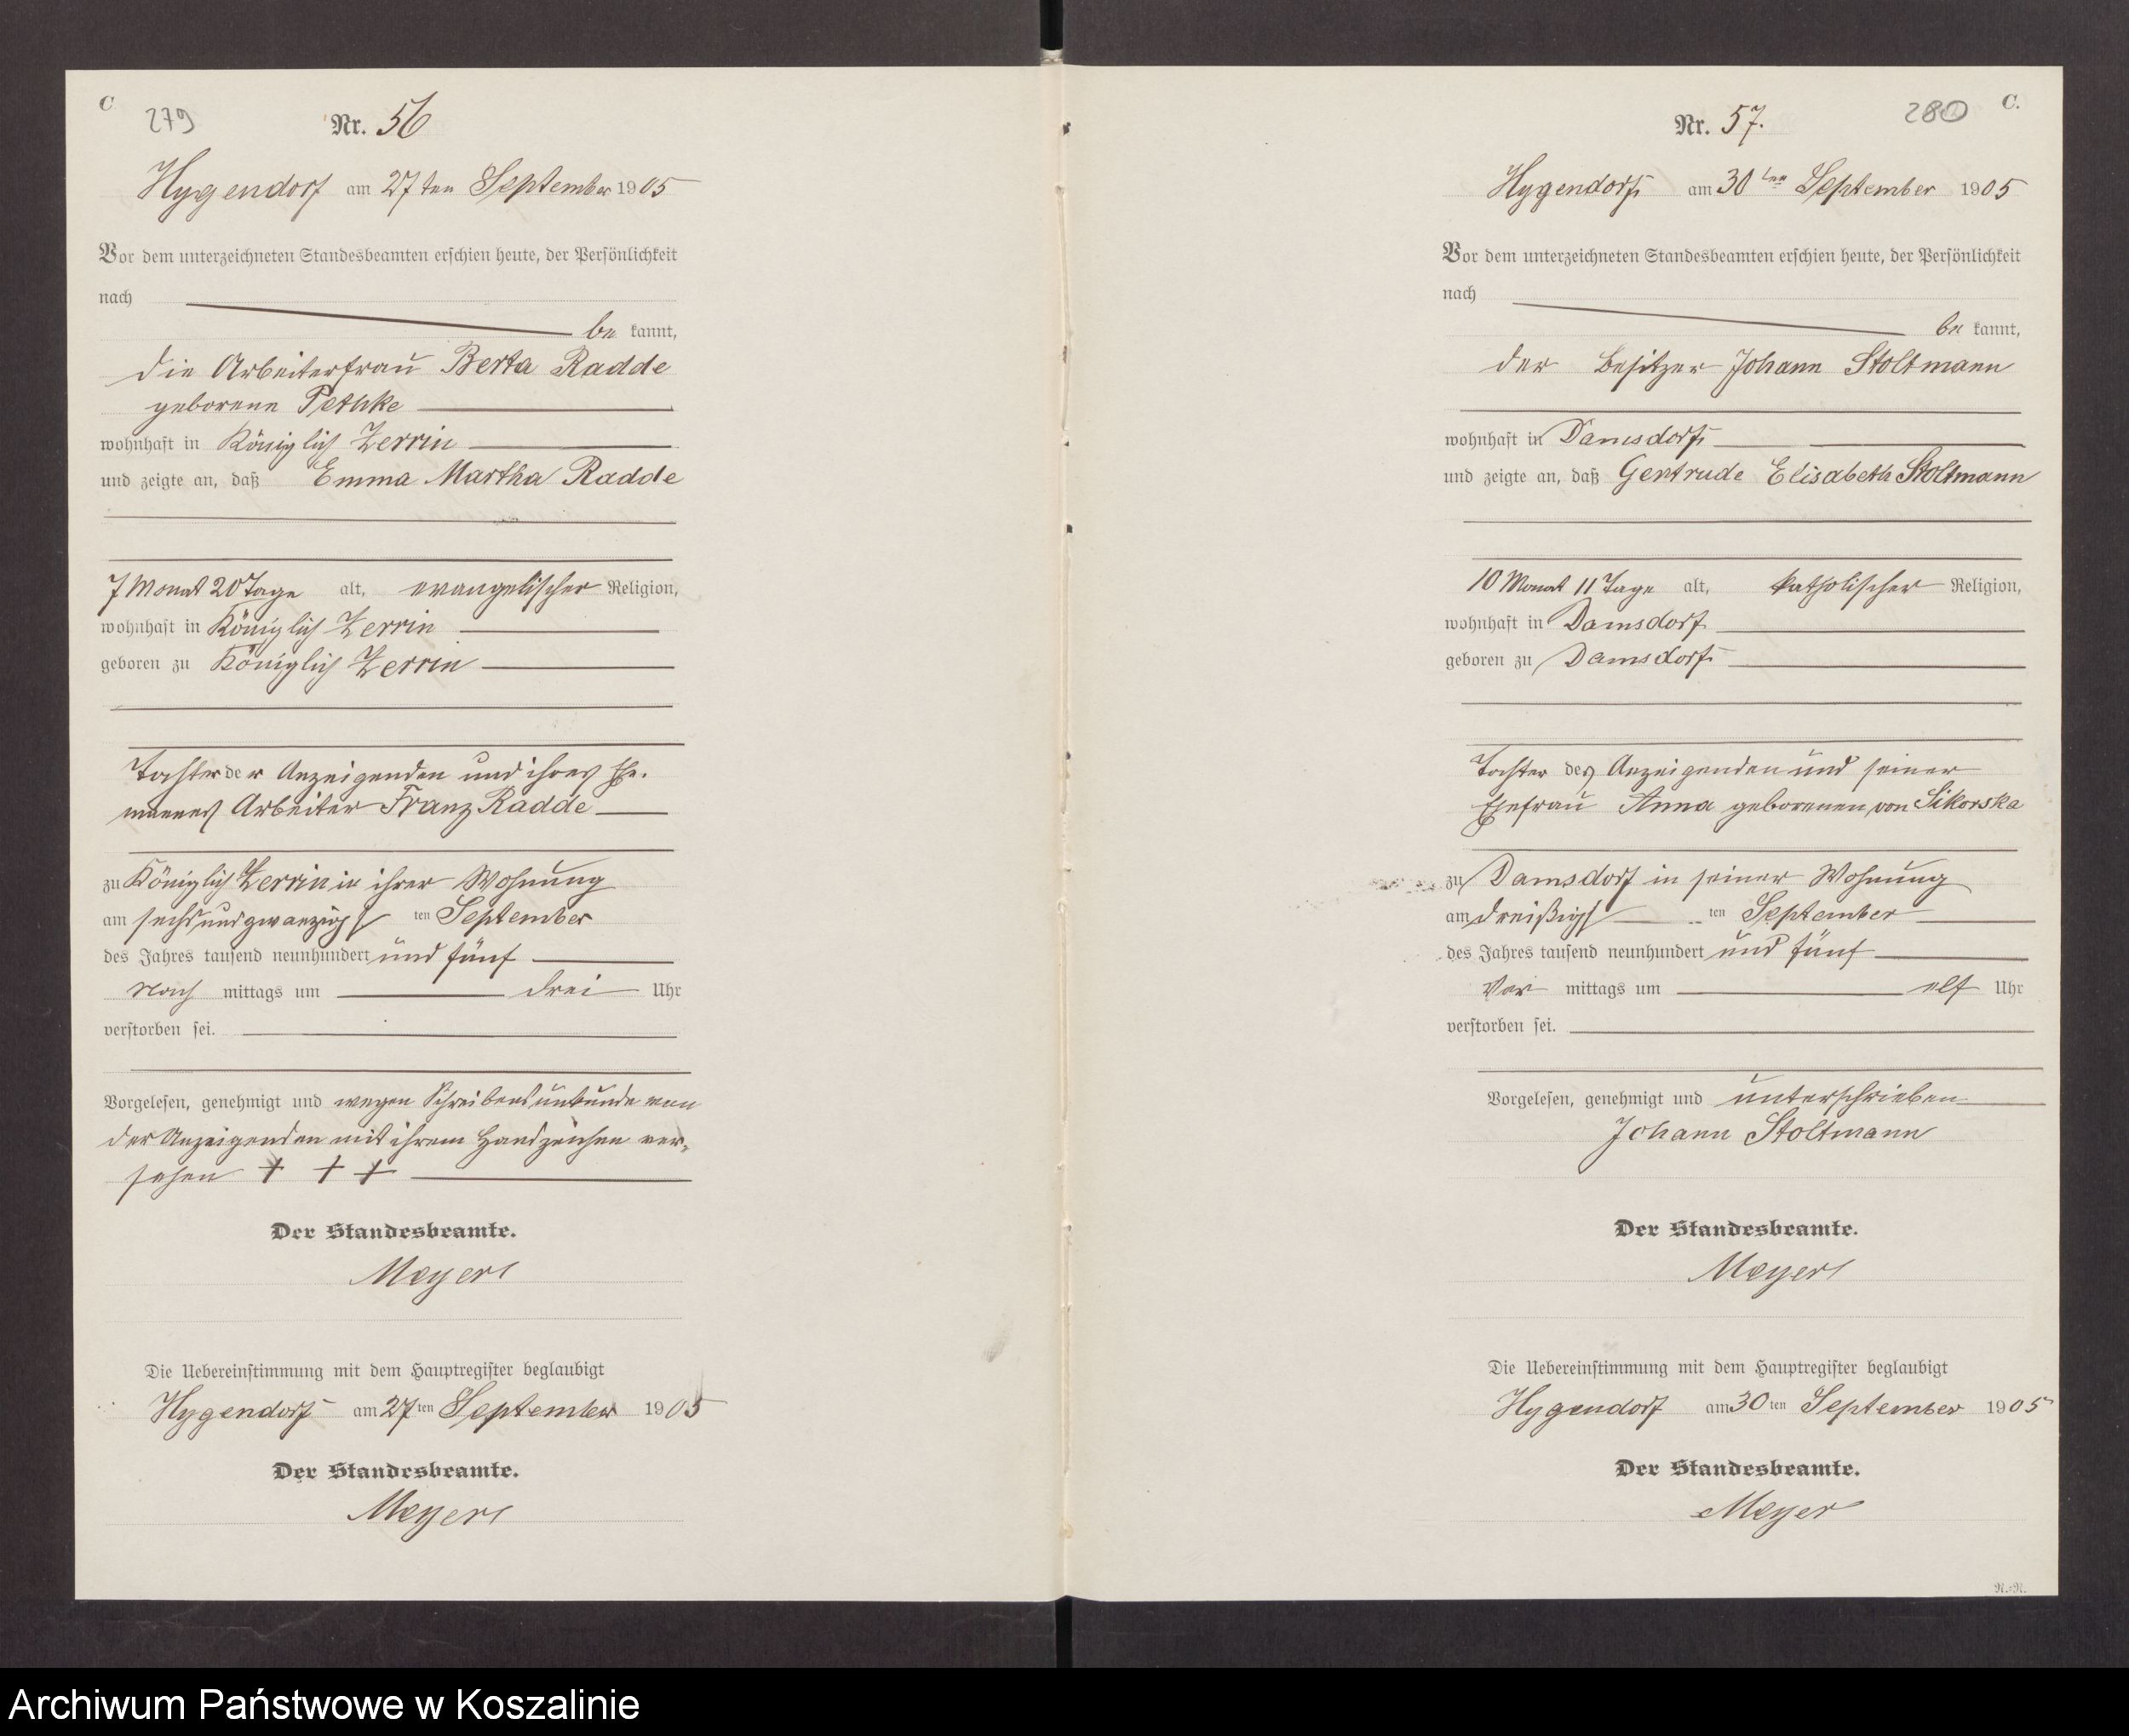 C
279
Nr. 56
Hygendorf am 27ten September 1905
Vor dem unterzeichneten Standesbeamten erschien heute, der Persönlichkeit
nach
be kannt,
die Arbeiterfrau Berta Radde
geborene Pethke
wohnhaft in Königlich Zerrin
und zeigte an, daß Emma Martha Radde
7 Monat 20 Tage alt, evangelischer Religion,
wohnhaft in Königlich Zerrin
geboren zu Königlich Zerrin
Tochter der Anzeigenden und ihres Ehe-
mannes Arbeiter Franz Radde
zu Königlich Zerrin in ihrer Wohnung
am sechsundzwanzigsten September
des Jahres tausend neunhundert und fünf
Nach mittags um drei Uhr
verstorben sei.
Vorgelesen, genehmigt und wegen Schreibensunkunde von
der Anzeigenden mit ihrem Handzeichen ver-
sehen + + +
Der Standesbeamte.
Meyer
Die Uebereinstimmung mit dem Hauptregister beglaubigt
Hygendorf am 27ten September 1905
Der Standesbeamte.
Meyer
280
C.
Nr. 57.
Hygendorf am 30ten September 1905
Vor dem unterzeichneten Standesbeamten erschien heute, der Persönlichkeit
nach
be kannt,
der Besitzer Johann Stoltmann
wohnhaft in Damsdorf
und zeigte an, daß Gertrude Elisabeth Stoltmann
10 Monat 11 Tage alt, katholischer Religion,
wohnhaft in Damsdorf
geboren zu Damsdorf
Tochter des Anzeigenden und seiner
Ehefrau Anna geborenen von Sikorska
zu Damsdorf in seiner Wohnung
am dreißigsten September
des Jahres tausend neunhundert und fünf
Vor mittags um elf Uhr
verstorben sei.
Vorgelesen, genehmigt und unterschrieben
Johann Stoltmann
Der Standesbeamte.
Meyer
Die Uebereinstimmung mit dem Hauptregister beglaubigt
Hygendorf am 30ten September 1905
Der Standesbeamte.
Meyer
Archiwum Państwowe w Koszalinie